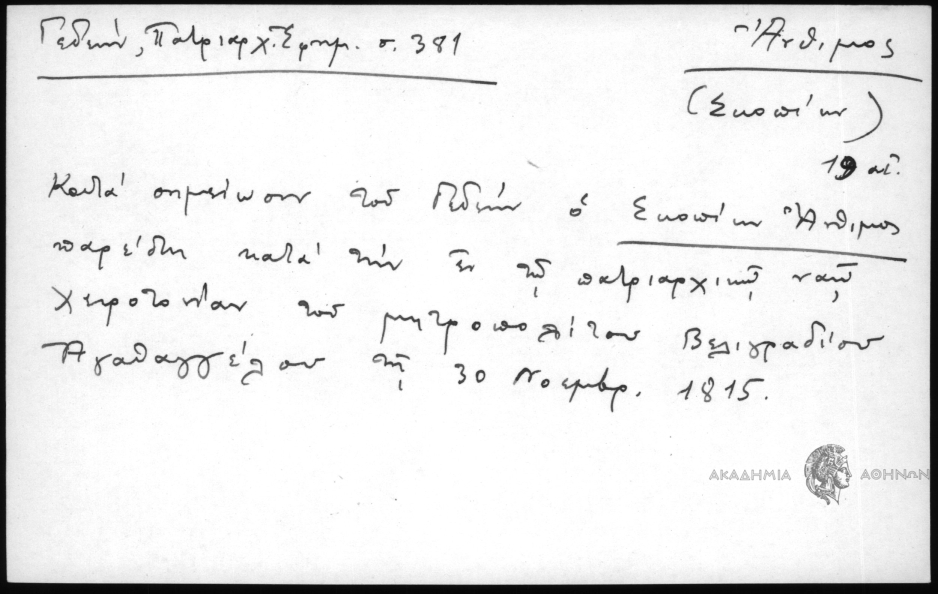 Γεδεών, Πατριαρχ. Ἐφημ. σ. 381
Ἄνθιμος
(Σκοπίων)
19 αἰ.
Κατά σημείωσιν τοῦ Γεδεών ὁ Σκοπίων Ἄνθιμος
παρέστη κατά τήν ἐν τῷ πατριαρχικῷ ναῷ
χειροτονίαν τοῦ μητροπολίτου Βελιγραδίου
Ἀγαθαγγέλου τῇ 30 Νοεμβρ. 1815.
ΑΚΑΔΗΜΙΑ ΑΘΗΝΩΝ